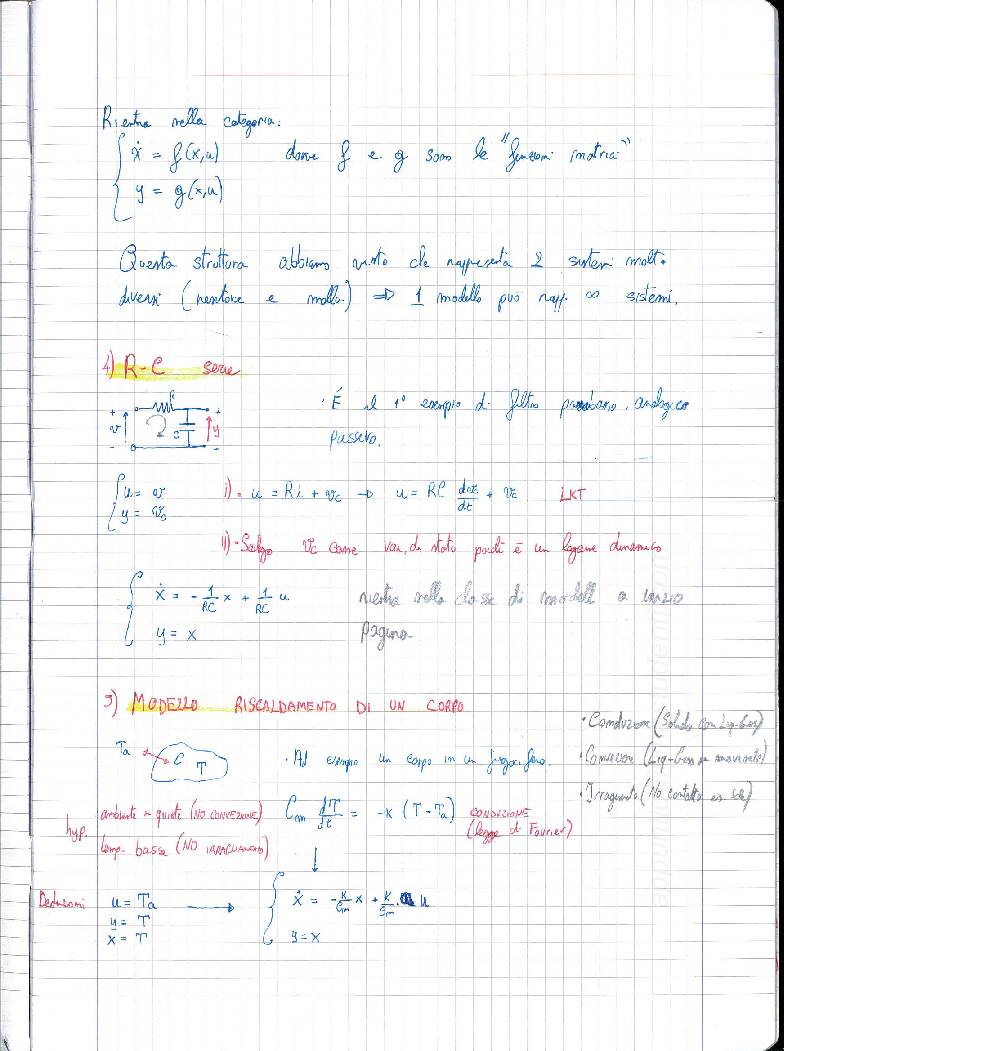 Rientra nella categoria:
ẋ = f(x,u) dove f e g sono le "funzioni matrici"
y = g(x,u)
Questa struttura abbiamo visto che rappresenta 2 sistemi molto
diversi (pendolo e molla) ⇒ 1 modello può rapp. ∞ sistemi.
4) R-C serie
R
+ v - C y + -
· È il 1° esempio di filtro analogico
passivo.
u = v
y = vc
i) · u = Ri + vc → u = RC dvc/dt + vc LKT
ii) · Scelgo vc come var. di stato perché è un legame dinamico
ẋ = -1/RC x + 1/RC u
y = x
rientra nella classe di modelli a inizio
pagina
5) MODELLO RISCALDAMENTO DI UN CORPO
· Conduzione (Solido con Liq-Gas)
Ta C T
· Ad esempio un corpo in un frigorifero.
· Convezione (Liq-Gas in movimento)
· Irraggiamento (No contatto es. Sole)
hyp. ambiente in quiete (NO CONVEZIONE)
temp. basse (NO IRRAGGIAMENTO)
Cm dT/dt = -k (T - Ta) CONDUZIONE
(legge di Fourier)
Deduzioni u = Ta
y = T
x = T
ẋ = -k/Cm x + k/Cm u
y = x